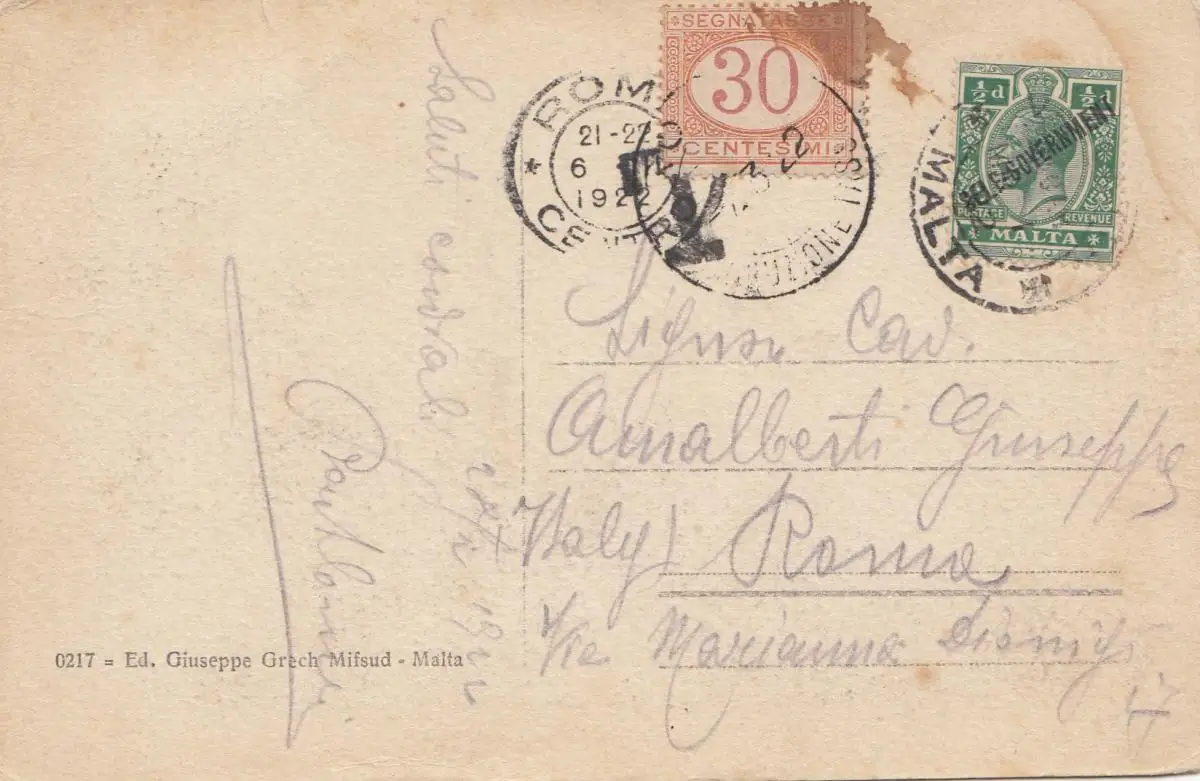 Saluti cordiali
1922
SEGNATASSE
30
CENTESIMI
ROMA
21-22
6
1922
CENTR
ROMA
22
DISTRIBUZIONE
T
½d ½d
SELF-GOVERNMENT
POSTAGE REVENUE
MALTA
MALTA
Signor Cav.
Amalberti Giuseppe
(Italy) Roma
Via Marianna Dionigi
17
0217 = Ed. Giuseppe Grech Mifsud - Malta